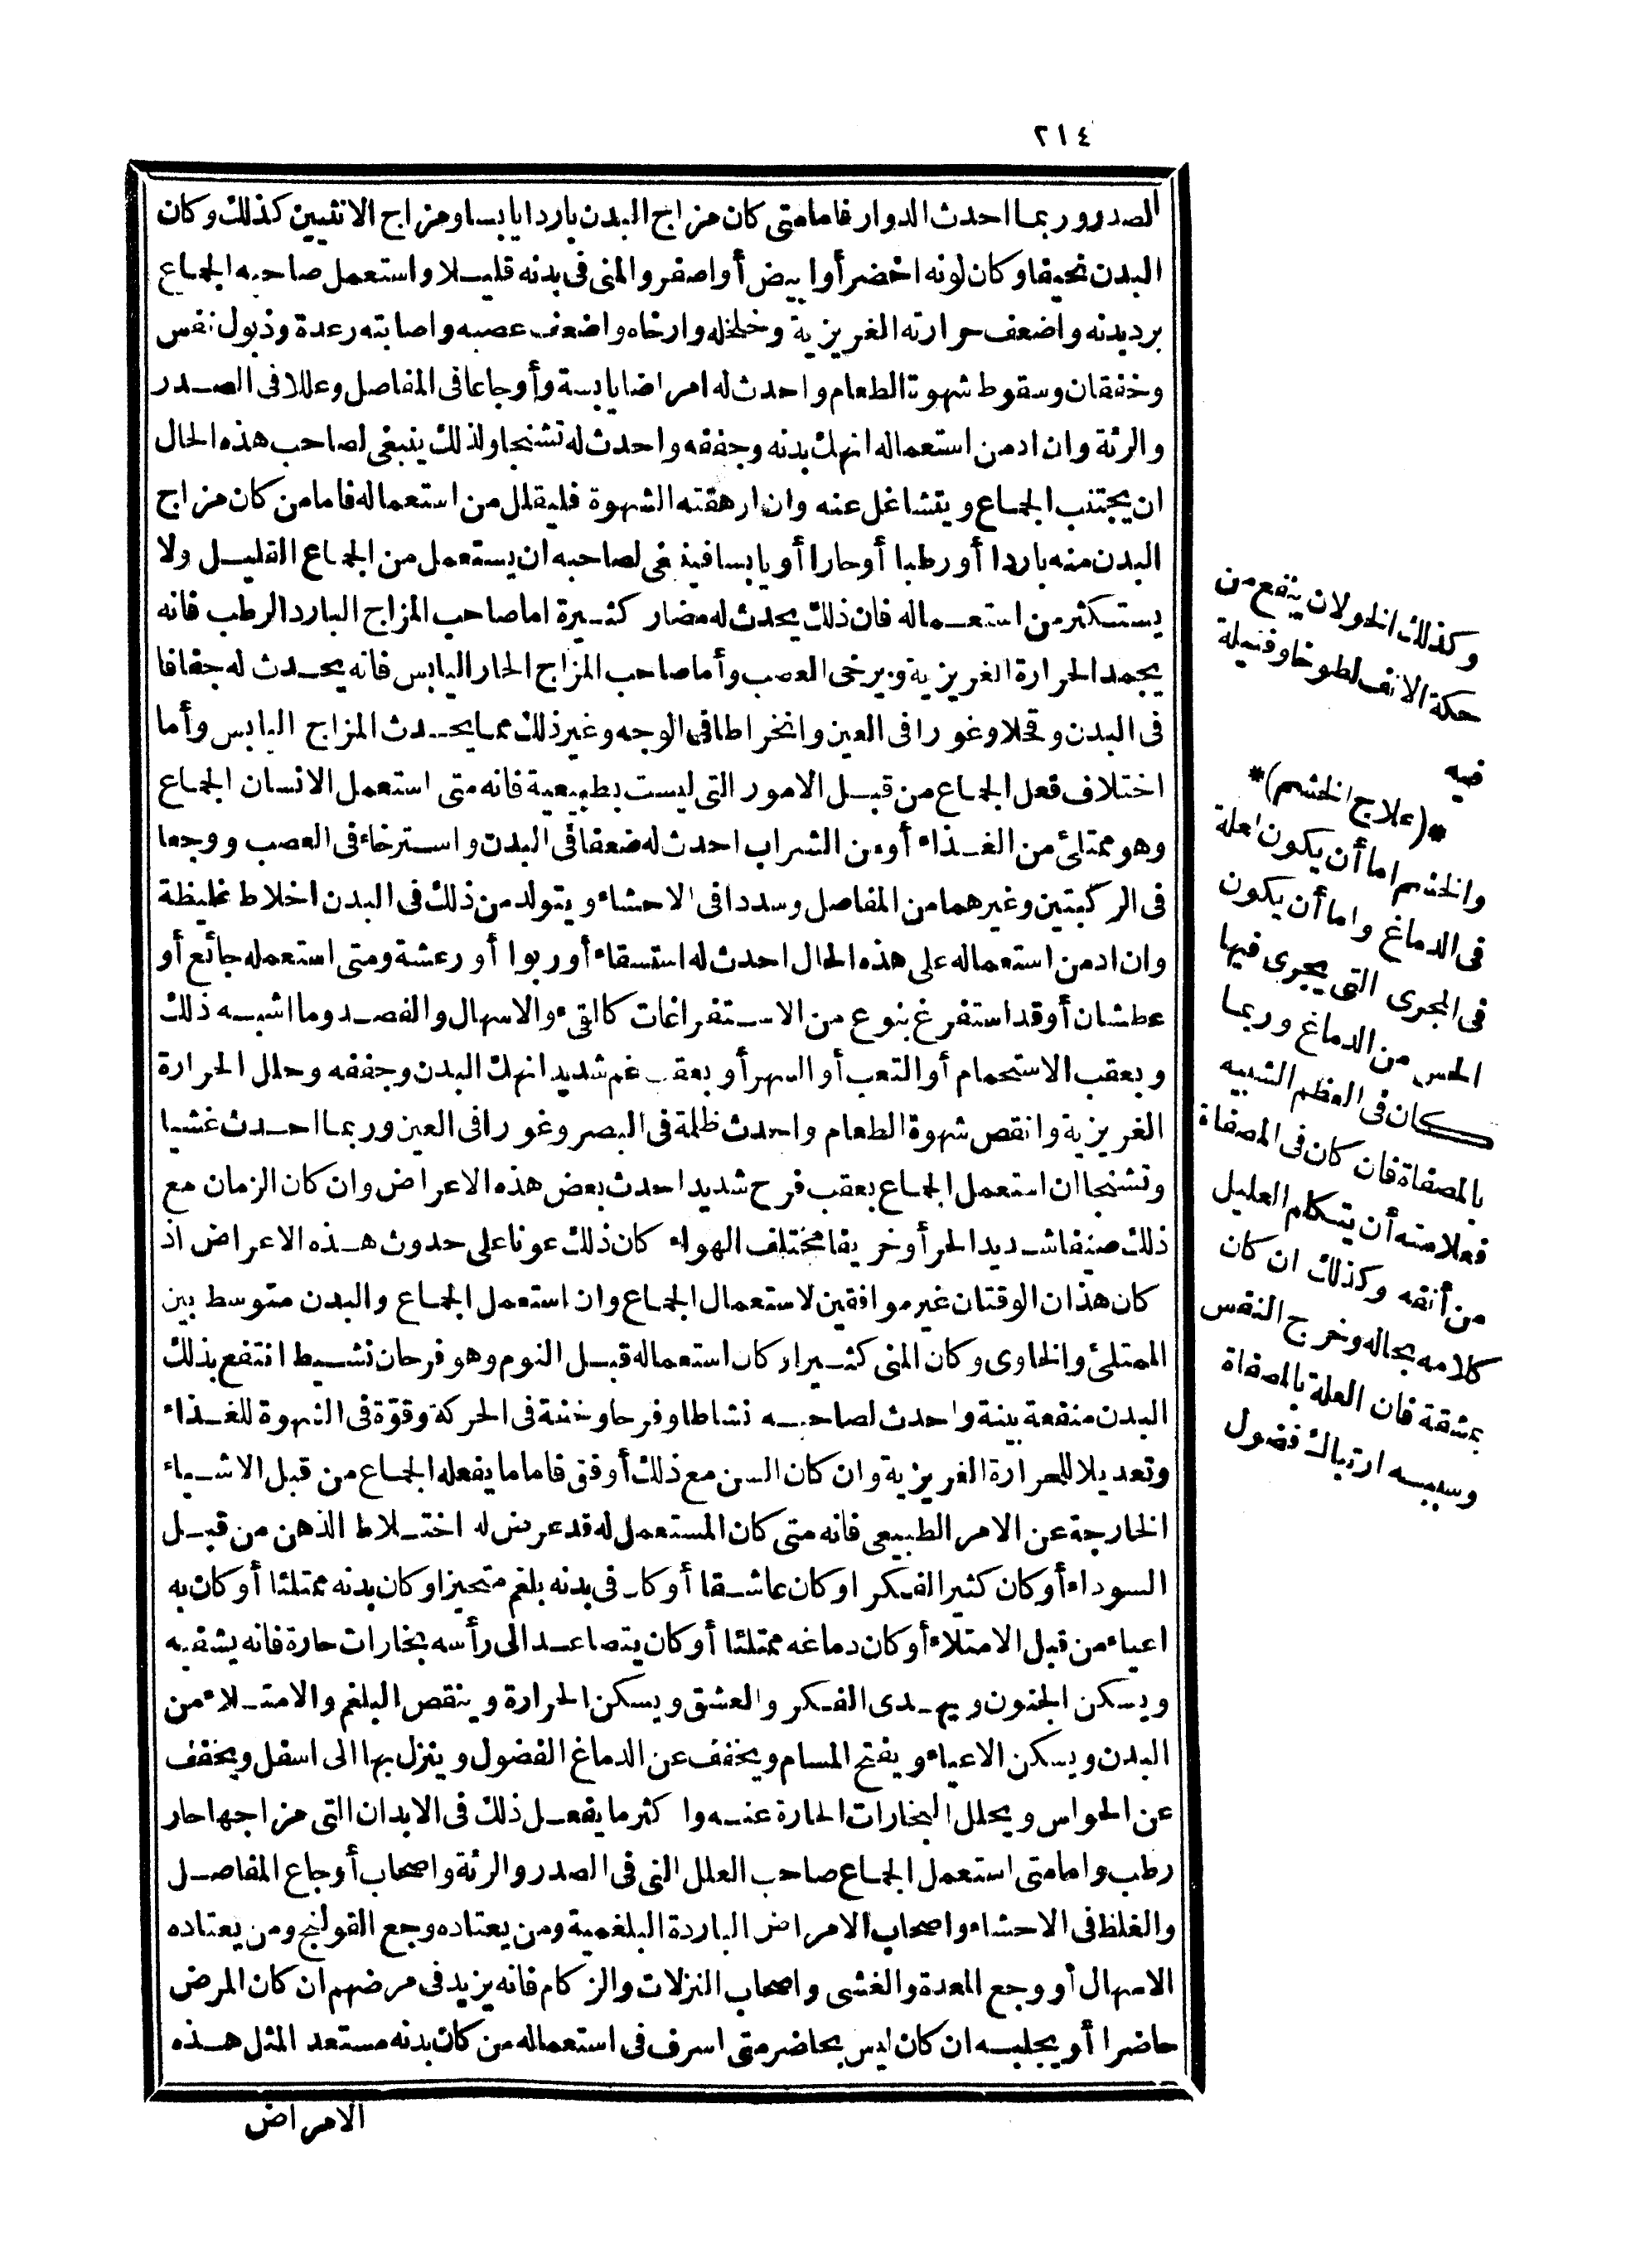 ٢١٤
الصدر وربما احدث الدوار فاما متى كان مزاج البدن باردا يابسا ومزاج الانثيين كذلك وكان
البدن نحيفا وكان لونه اخضر أو ابيض أو اصفر والمنى فى بدنه قليلا واستعمل صاحبه الجماع
برد بدنه واضعف حرارته الغريزية وخلخله وارخاه واضعف عصبه واصابته رعدة وذبول نفس
وخفقان وسقوط شهوة الطعام واحدث له امراضا يابسة وأوجاعا فى المفاصل وعللا فى الصدر
والرئة وان ادمن استعماله انهك بدنه وجففه واحدث له تشنجا ولذلك ينبغى لصاحب هذه الحال
ان يجتنب الجماع ويتشاغل عنه وان ارهقته الشهوة فليقلل من استعماله فاما من كان مزاج
البدن منه باردا أو رطبا أو حارا أو يابسا فينبغى لصاحبه ان يستعمل من الجماع القليل ولا
يستكثر من استعماله فان ذلك يحدث له مضار كثيرة اما صاحب المزاج البارد الرطب فانه
يجمد الحرارة الغريزية ويرخى العصب وأما صاحب المزاج الحار اليابس فانه يحدث له جفافا
فى البدن وقحلا وغورا فى العين وانخراطا فى الوجه وغير ذلك مما يحدث المزاج اليابس وأما
اختلاف فعل الجماع من قبل الامور التى ليست بطبيعية فانه متى استعمل الانسان الجماع
وهو ممتلئ من الغذاء أو من الشراب احدث له ضعفا فى البدن واسترخاء فى العصب ووجعا
فى الركبتين وغيرهما من المفاصل وسددا فى الاحشاء ويتولد من ذلك فى البدن اخلاط غليظة
وان ادمن استعماله على هذه الحال احدث له استسقاء أو ربوا أو رعشة ومتى استعمله جائع أو
عطشان أو قد استفرغ بنوع من الاستفراغات كالقىء والاسهال والفصد وما اشبه ذلك
وبعقب الاستحمام أو التعب أو السهر أو بعقب غم شديد انهك البدن وجففه وحلل الحرارة
الغريزية وانقص شهوة الطعام واحدث ظلمة فى البصر وغورا فى العين وربما احدث غشيا
وتشنجا ان استعمل الجماع بعقب فرح شديد احدث بعض هذه الاعراض وان كان الزمان مع
ذلك صيفا شديد الحر أو خريفا مختلف الهواء كان ذلك عونا على حدوث هذه الاعراض اذ
كان هذان الوقتان غير موافقين لاستعمال الجماع وان استعمل الجماع والبدن متوسط بين
الممتلئ والخاوى وكان المنى كثيرا وكان استعماله قبل النوم وهو فرحان نشيط انتفع بذلك
البدن منفعة بينة واحدث لصاحبه نشاطا وفرحا وخفة فى الحركة وقوّة فى الشهوة للغذاء
وتعديلا للحرارة الغريزية وان كان السن مع ذلك أوفق فاما ما يفعله الجماع من قبل الاشياء
الخارجة عن الامر الطبيعى فانه متى كان المستعمل له قد عرض له اختلاط الذهن من قبل
السوداء أو كان كثير الفكر او كان عاشقا أو كان فى بدنه بلغم متحيز او كان بدنه ممتلئا أو كان به
اعياء من قبل الامتلاء أو كان دماغه ممتلئا أو كان يتصاعد الى رأسه بخارات حارة فانه يشفيه
ويسكن الجنون ويهدى الفكر والعشق ويسكن الحرارة وينقص البلغم والامتلاء من
البدن ويسكن الاعياء ويفتح المسام ويخفف عن الدماغ الفضول وينزل بها الى اسفل ويخفف
عن الحواس ويحلل البخارات الحارة عنه واكثر ما يفعل ذلك فى الابدان التى مزاجها حار
رطب واما متى استعمل الجماع صاحب العلل التى فى الصدر والرئة واصحاب أوجاع المفاصل
والغلظ فى الاحشاء واصحاب الامراض الباردة البلغمية ومن يعتاده وجع القولنج ومن يعتاده
الاسهال أو وجع المعدة والغشى واصحاب النزلات والزكام فانه يزيد فى مرضهم ان كان المرض
حاضرا أو يجلبه ان كان ليس بحاضر متى اسرف فى استعماله من كان بدنه مستعد المثل هذه
الامراض
وكذلك الخولان ينفع من
حكة الانف لطوخا وفتيلة
فيه
*(علاج الخشم)*
والخشم اما أن يكون لعلة
فى الدماغ واما أن يكون
فى المجرى التى يجرى فيها
الحس من الدماغ وربما
كان فى العظم الشبيه
بالمصفاة فان كان فى المصفاة
فعلامته أن يتكلم العليل
من أنفه وكذلك ان كان
كلامه بحاله وخرج النفس
بمشقة فان العلة بالمصفاة
وسببه ارتباك فضول